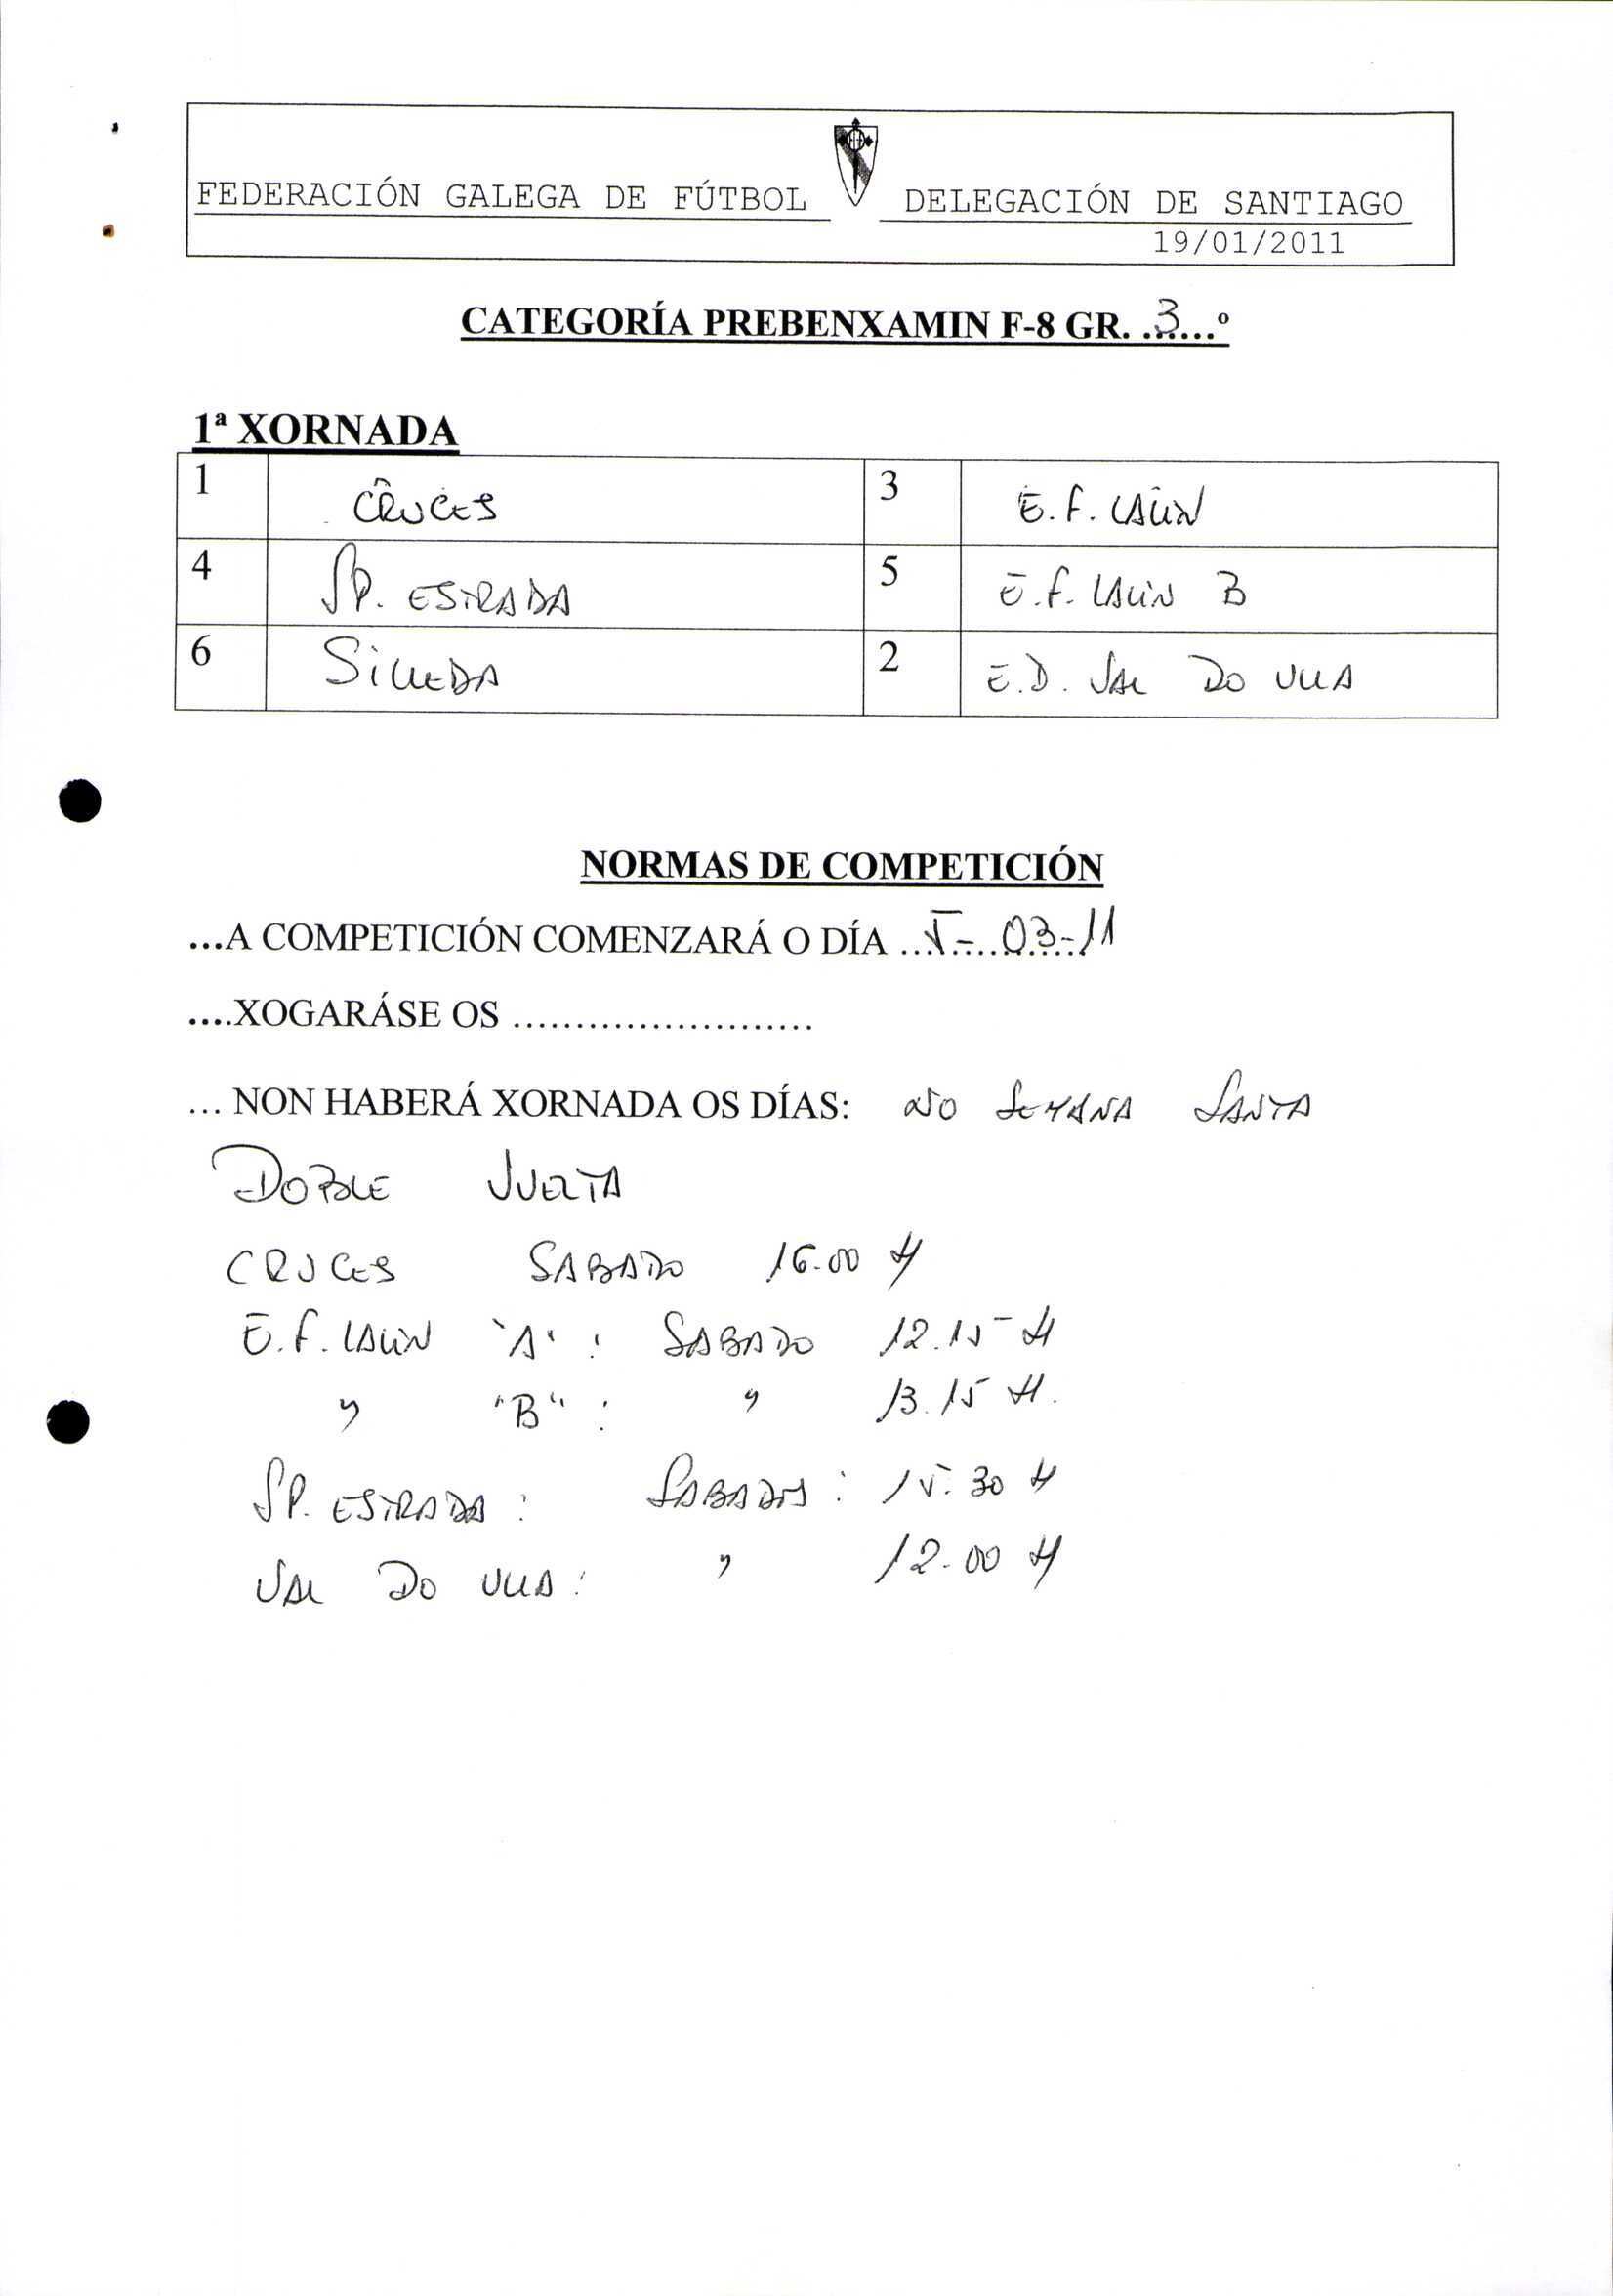 FEDERACIÓN GALEGA DE FÚTBOL DELEGACIÓN DE SANTIAGO
19/01/2011
CATEGORÍA PREBENXAMIN F-8 GR. ..3...º
1ª XORNADA
1 CRUCES 3 E.F. LALIN
4 SP. ESTRADA 5 E.F. LALIN B
6 SILLEDA 2 E.D. VAL DO ULLA
NORMAS DE COMPETICIÓN
...A COMPETICIÓN COMENZARÁ O DÍA ..5-...03-11
....XOGARÁSE OS ........................
... NON HABERÁ XORNADA OS DÍAS: NO SEMANA SANTA
DOBLE VUELTA
CRUCES SABADO 16.00 H
E.F. LALIN "A" : SABADO 12.15 H
" "B" : " 13.15 H.
SP. ESTRADA : SABADOS : 15.30 H
VAL DO ULLA : " 12.00 H